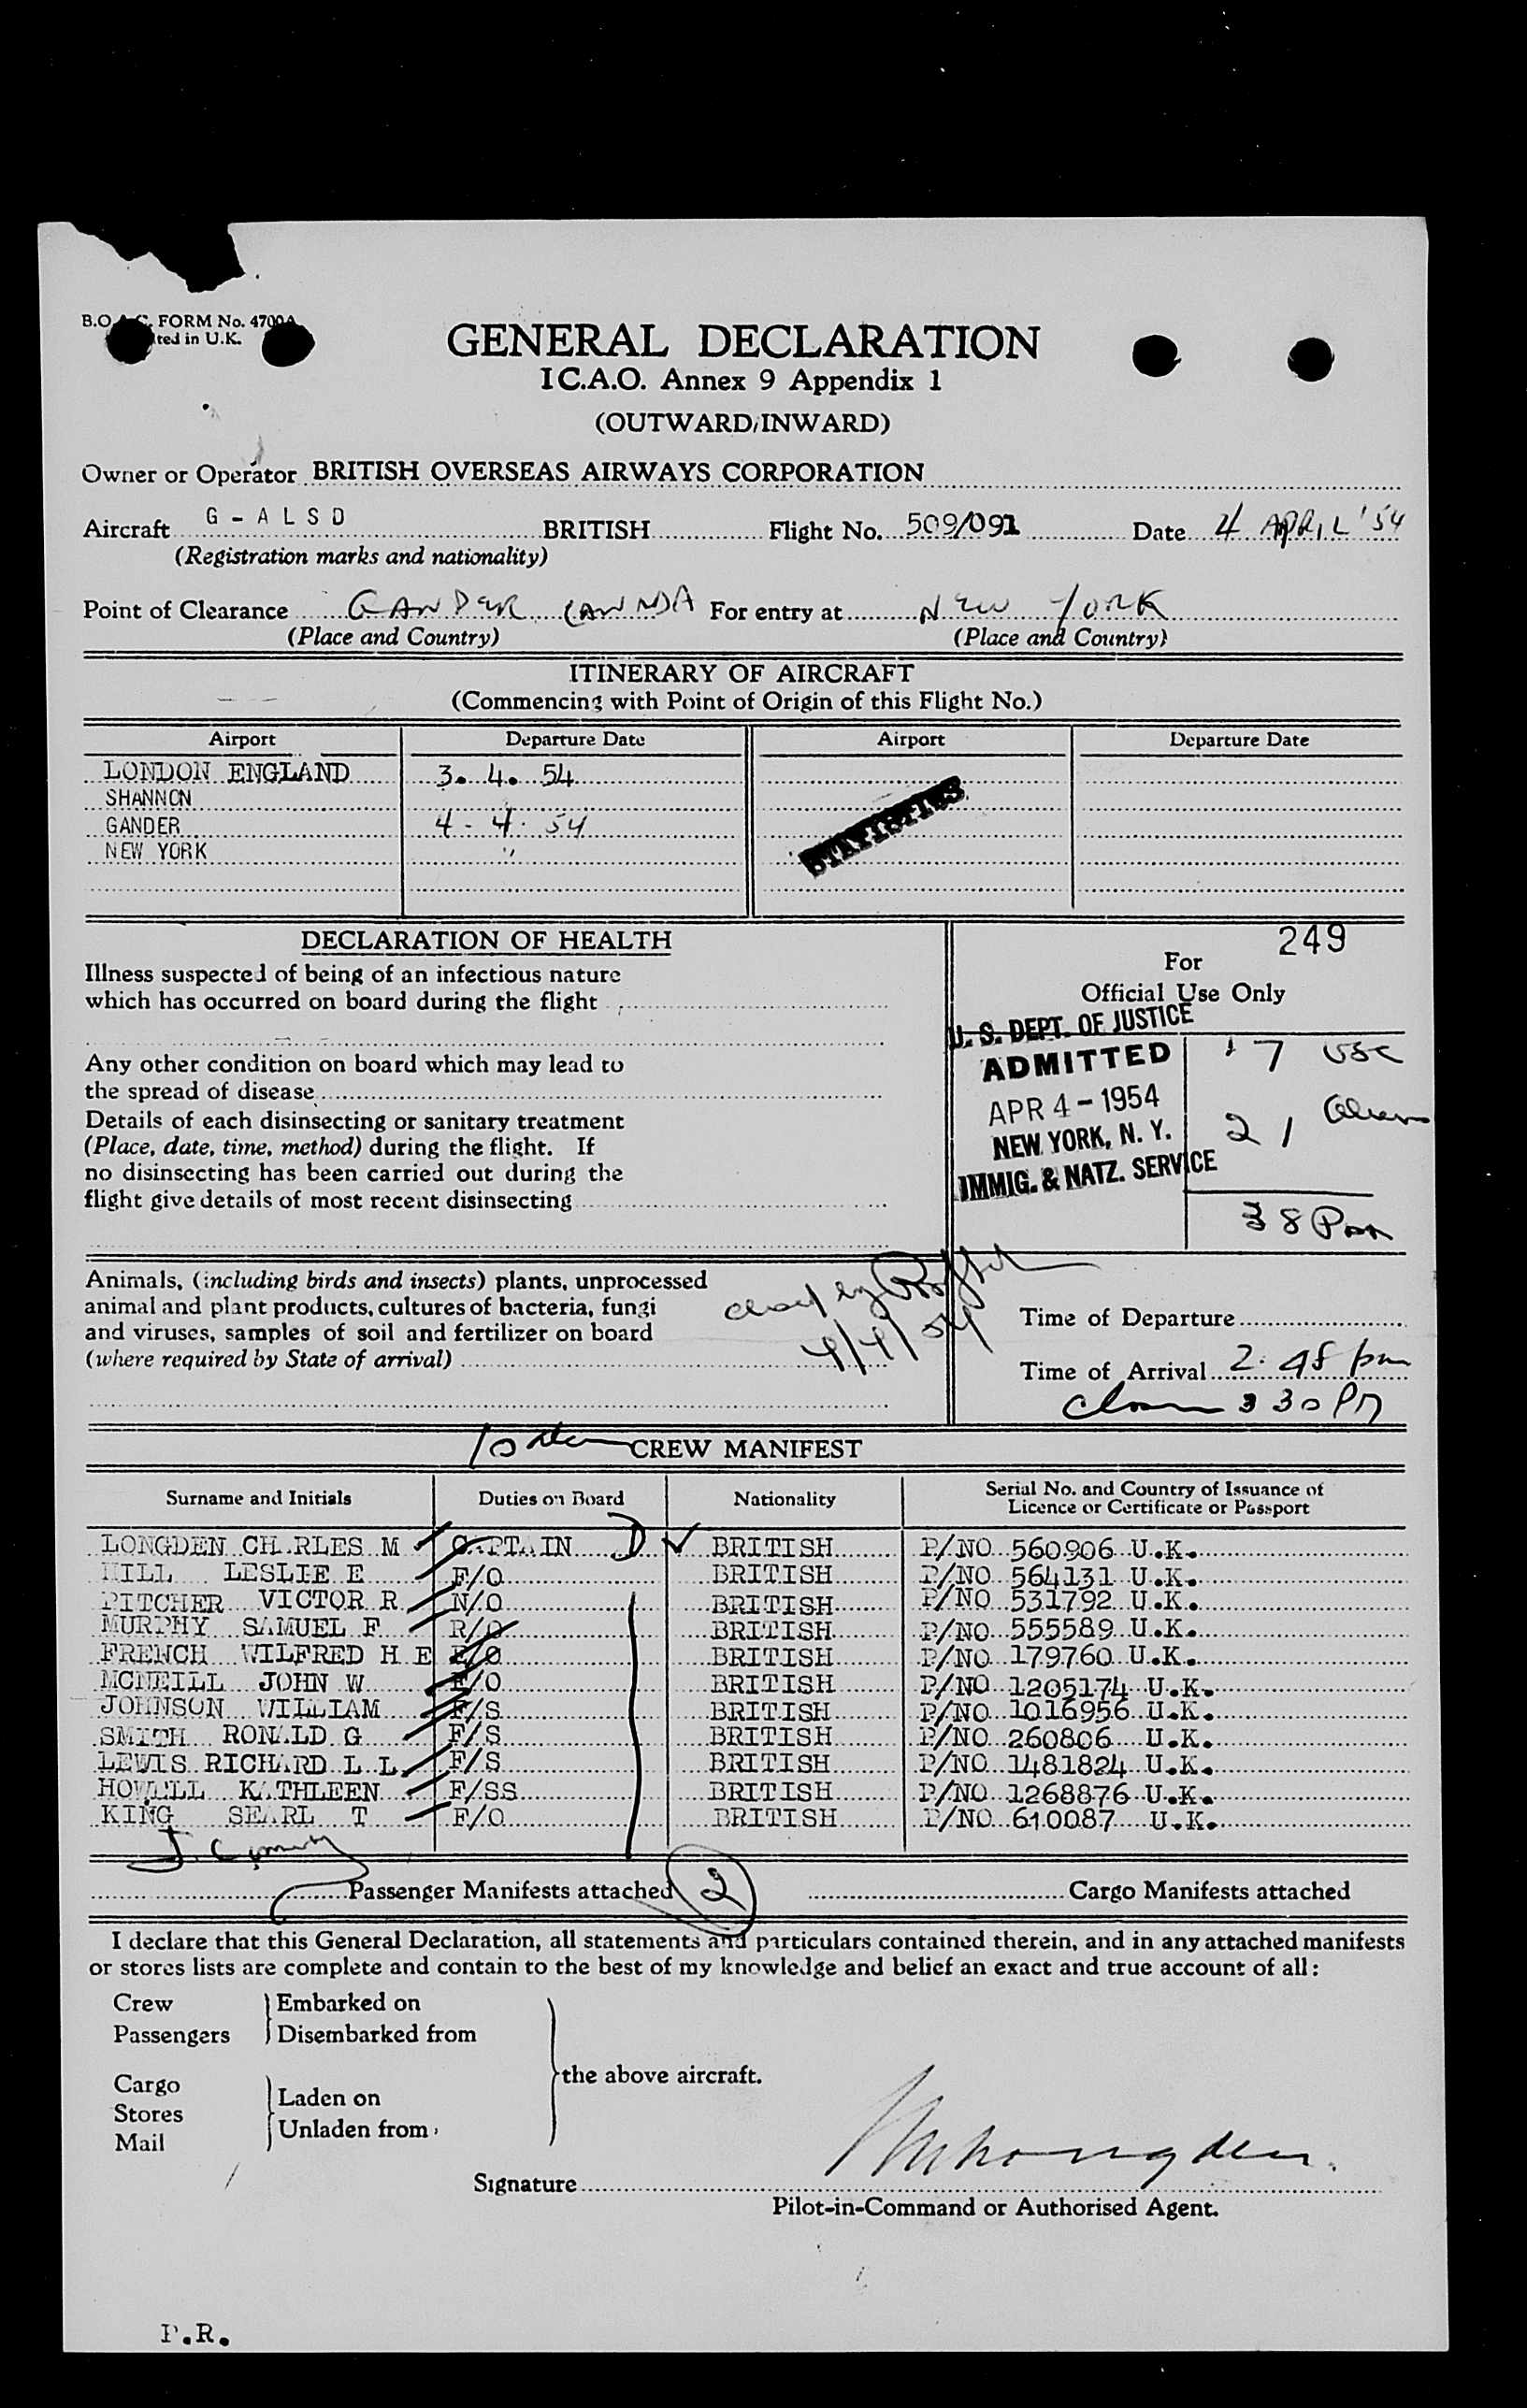 B.O.A.C. FORM No. 4700A
ted in U.K.
GENERAL DECLARATION
I C.A.O. Annex 9 Appendix 1
(OUTWARD/INWARD)
Owner or Operator BRITISH OVERSEAS AIRWAYS CORPORATION
Aircraft G - A L S D BRITISH Flight No. 509/091 Date 4 APRIL '54
(Registration marks and nationality)
Point of Clearance GANDER CANADA For entry at NEW YORK
(Place and Country) (Place and Country)
ITINERARY OF AIRCRAFT
(Commencing with Point of Origin of this Flight No.)
Airport Departure Date Airport Departure Date
LONDON ENGLAND 3. 4. 54
SHANNON
GANDER 4 - 4 - 54
NEW YORK "
STATISTICS
DECLARATION OF HEALTH
Illness suspected of being of an infectious nature
which has occurred on board during the flight
Any other condition on board which may lead to
the spread of disease
Details of each disinsecting or sanitary treatment
(Place, date, time, method) during the flight. If
no disinsecting has been carried out during the
flight give details of most recent disinsecting
249
For
Official Use Only
U. S. DEPT. OF JUSTICE
ADMITTED
APR 4 - 1954
NEW YORK, N. Y.
IMMIG. & NATZ. SERVICE
17 USC
21
38
Animals, (including birds and insects) plants, unprocessed
animal and plant products, cultures of bacteria, fungi
and viruses, samples of soil and fertilizer on board
(where required by State of arrival)
4/4/54
Time of Departure
Time of Arrival 2.48 pm
3 30 PM
CREW MANIFEST
Surname and Initials Duties on Board Nationality Serial No. and Country of Issuance of
Licence or Certificate or Passport
LONGDEN CHARLES M CAPTAIN D BRITISH P/NO 560906 U.K.
HILL LESLIE E F/O BRITISH P/NO 564131 U.K.
PITCHER VICTOR R N/O BRITISH P/NO 531792 U.K.
MURPHY SAMUEL F R/O BRITISH P/NO 555589 U.K.
FRENCH WILFRED H E E/O BRITISH P/NO 179760 U.K.
MCNEILL JOHN W E/O BRITISH P/NO 1205174 U.K.
JOHNSON WILLIAM F/S BRITISH P/NO 1016956 U.K.
SMITH RONALD G F/S BRITISH P/NO 260806 U.K.
LEWIS RICHARD L L F/S BRITISH P/NO 1481824 U.K.
HOWELL KATHLEEN F/SS BRITISH P/NO 1268876 U.K.
KING SEARL T F/O BRITISH P/NO 610087 U.K.
Passenger Manifests attached 2 Cargo Manifests attached
I declare that this General Declaration, all statements and particulars contained therein, and in any attached manifests
or stores lists are complete and contain to the best of my knowledge and belief an exact and true account of all:
Crew Embarked on
Passengers Disembarked from
the above aircraft.
Cargo
Stores Laden on
Mail Unladen from
Signature
Pilot-in-Command or Authorised Agent.
P.R.